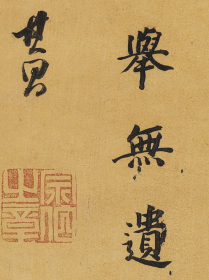 舉無遺
其昌